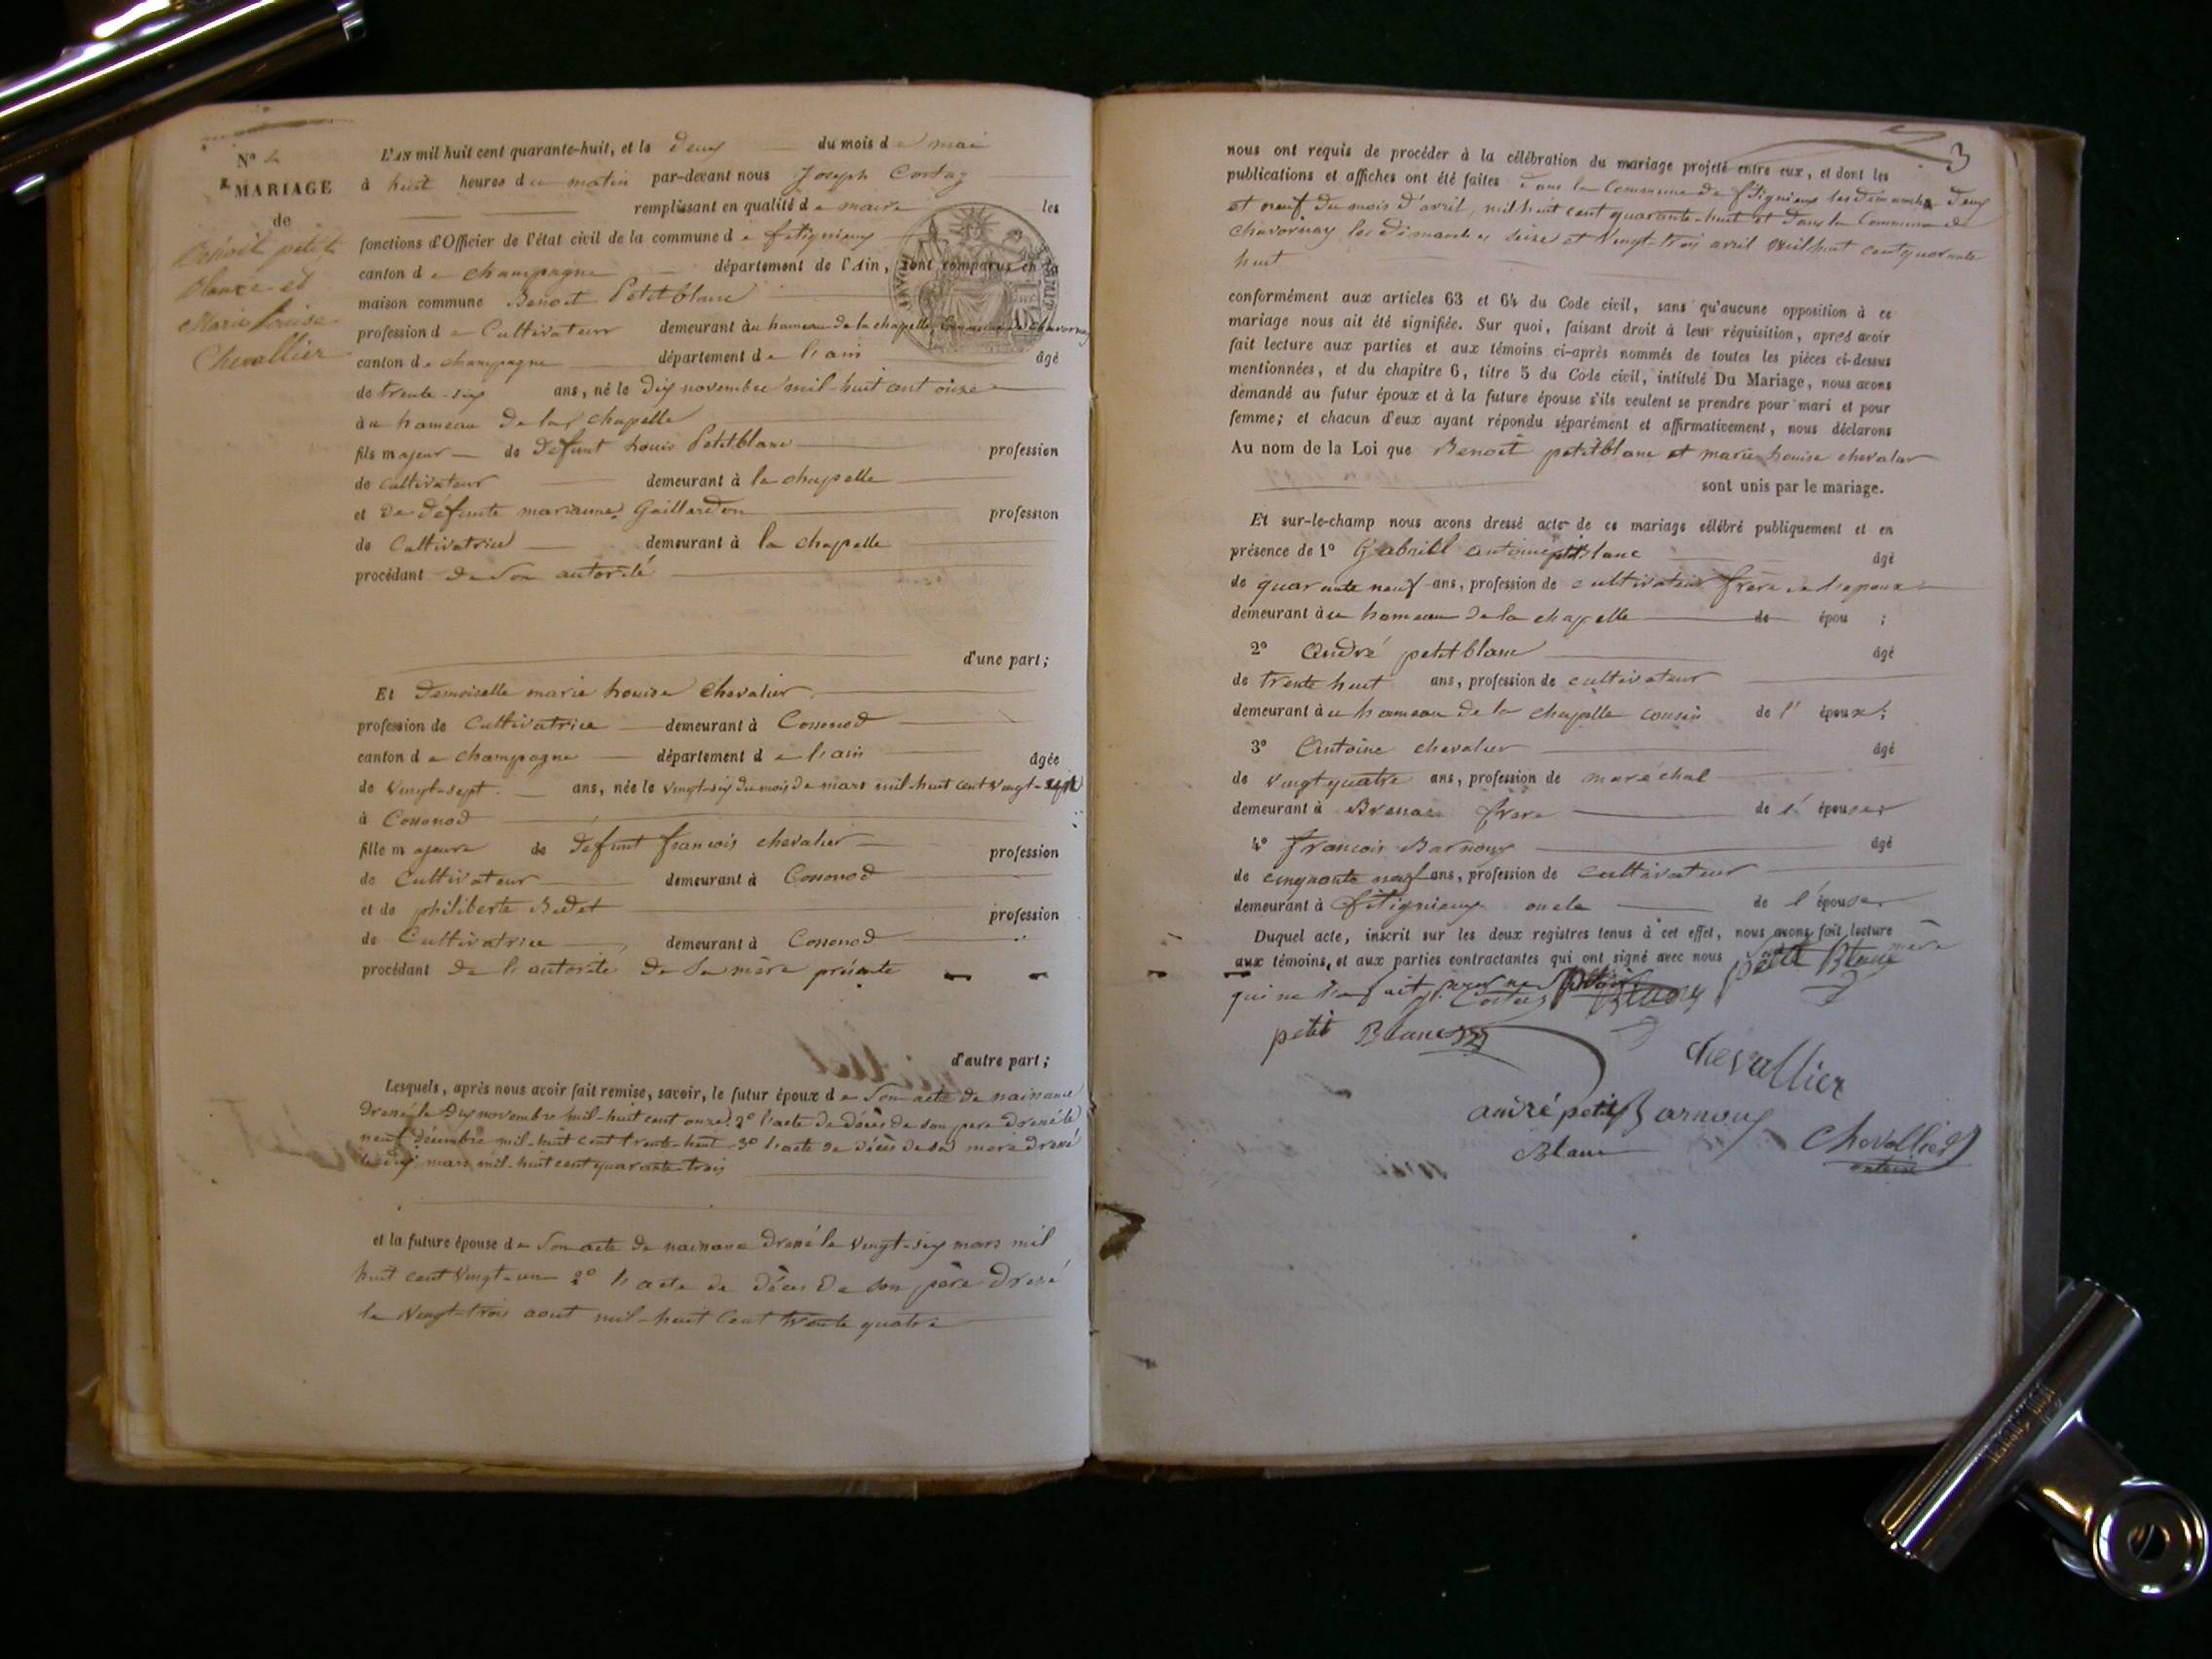 N° 2
MARIAGE
de
Benoit petit
blanc et
Marie Louise
Chevallier
L'AN mil huit cent quarante-huit, et le deux du mois de mai
à huit heures du matin par-devant nous Joseph Costaz
remplissant en qualité de maire les
fonctions d'Officier de l'état civil de la commune de fitignieux
canton de champagne département de l'Ain, sont comparus en la
maison commune Benoit Petitblanc
profession de Cultivateur demeurant au hameau de la chapelle Commune de Chavornay
canton de champagne département de l'ain âgé
de trente-six ans, né le dix novembre mil-huit cent onze
au hameau de la chapelle
fils majeur de défunt Louis Petitblanc profession
de Cultivateur demeurant à la chapelle
et de défunte marianne Gaillardon profession
de Cultivatrice demeurant à la chapelle
procédant de son autorité
d'une part;
Et Demoiselle marie Louise Chevalier
profession de Cultivatrice demeurant à Cossonod
canton de champagne département de l'ain âgée
de vingt-sept ans, née le vingt-six du mois de mars mil-huit cent vingt-
à Cossonod
fille majeure de défunt francois chevalier profession
de Cultivateur demeurant à Cossonod
et de philiberte Budet profession
de Cultivatrice demeurant à Cossonod
procédant de l'autorité de Sa mère présente
d'autre part;
Lesquels, après nous avoir fait remise, savoir, le futur époux de Son acte de naissance
dressé le dix novembre mil-huit cent onze. 2° l'acte de décès de son père dressé le
neuf décembre mil-huit cent trente-huit 3° l'acte de décès de sa mère dressé
le dix mars mil-huit cent quarante-trois
et la future épouse de Son acte de naissance dressé le vingt-six mars mil
huit cent vingt-un 2° l'acte de décès de son père dressé
le vingt-trois aout mil-huit cent trente quatre
3
nous ont requis de procéder à la célébration du mariage projeté entre eux, et dont les
publications et affiches ont été faites dans la Commune de fitignieux les dimanche deux
et neuf du mois d'avril, mil huit cent quarante-huit et dans la Commune de
chavornay les dimanches seize et vingt-trois avril mil huit cent quarante
huit
conformément aux articles 63 et 64 du Code civil, sans qu'aucune opposition à ce
mariage nous ait été signifiée. Sur quoi, faisant droit à leur réquisition, apres avoir
fait lecture aux parties et aux témoins ci-après nommés de toutes les pièces ci-dessus
mentionnées, et du chapitre 6, titre 5 du Code civil, intitulé Du Mariage, nous avons
demandé au futur époux et à la future épouse s'ils veulent se prendre pour mari et pour
femme; et chacun d'eux ayant répondu séparément et affirmativement, nous déclarons
Au nom de la Loi que Benoit petitblanc et marie Louise chevalier
sont unis par le mariage.
Et sur-le-champ nous avons dressé acte de ce mariage célébré publiquement et en
présence de 1° Gabriel Antoine petitblanc âgé
de quarante neuf ans, profession de cultivateur frère de l'epoux
demeurant au hameau de la chapelle de épou ;
2° André petitblanc âgé
de trente huit ans, profession de cultivateur
demeurant au hameau de la chapelle cousin de l'époux;
3° Antoine chevalier âgé
de vingt quatre ans, profession de maréchal
demeurant à frère de l'épouse
4° francois Barnoux âgé
de cinquante neuf ans, profession de Cultivateur
demeurant à fitignieux oncle de l'épouse
Duquel acte, inscrit sur les deux registres tenus à cet effet, nous avons fait lecture
aux témoins, et aux parties contractantes qui ont signé avec nous mère
petit Blanc
petit Blanc
chevallier
andré petit Barnoux
Blanc Chevallier
antoine